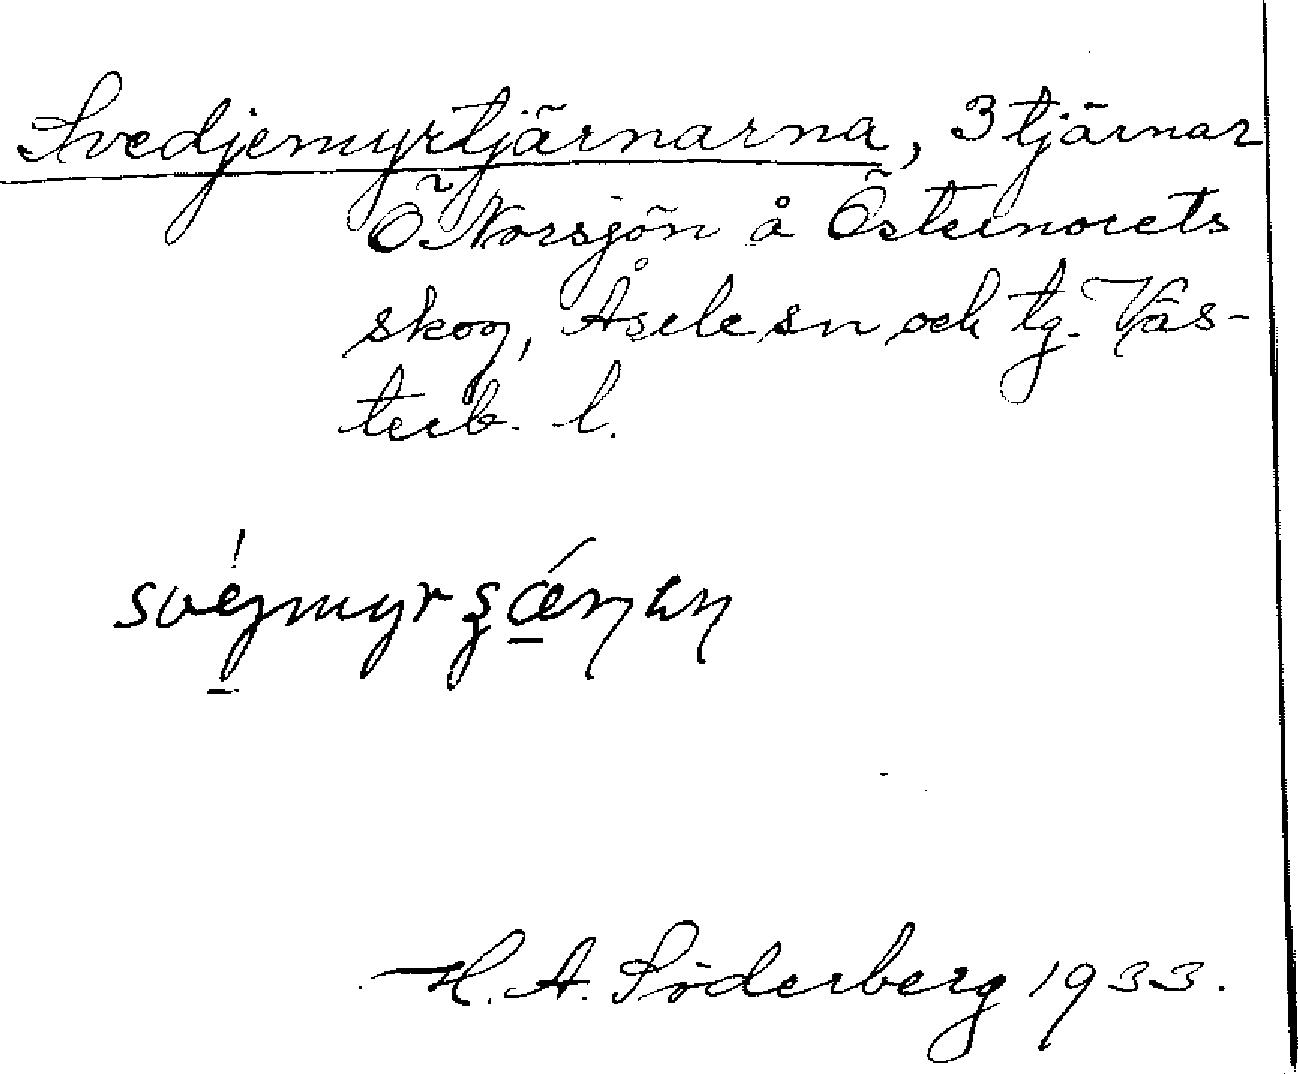 Svedjemyrtjärnarna, 3 tjärnar
Ö Norsjön å Östernorets
skog, Åsele sn och tg. Väs-
terb. l.
H. A. Söderberg 1933.